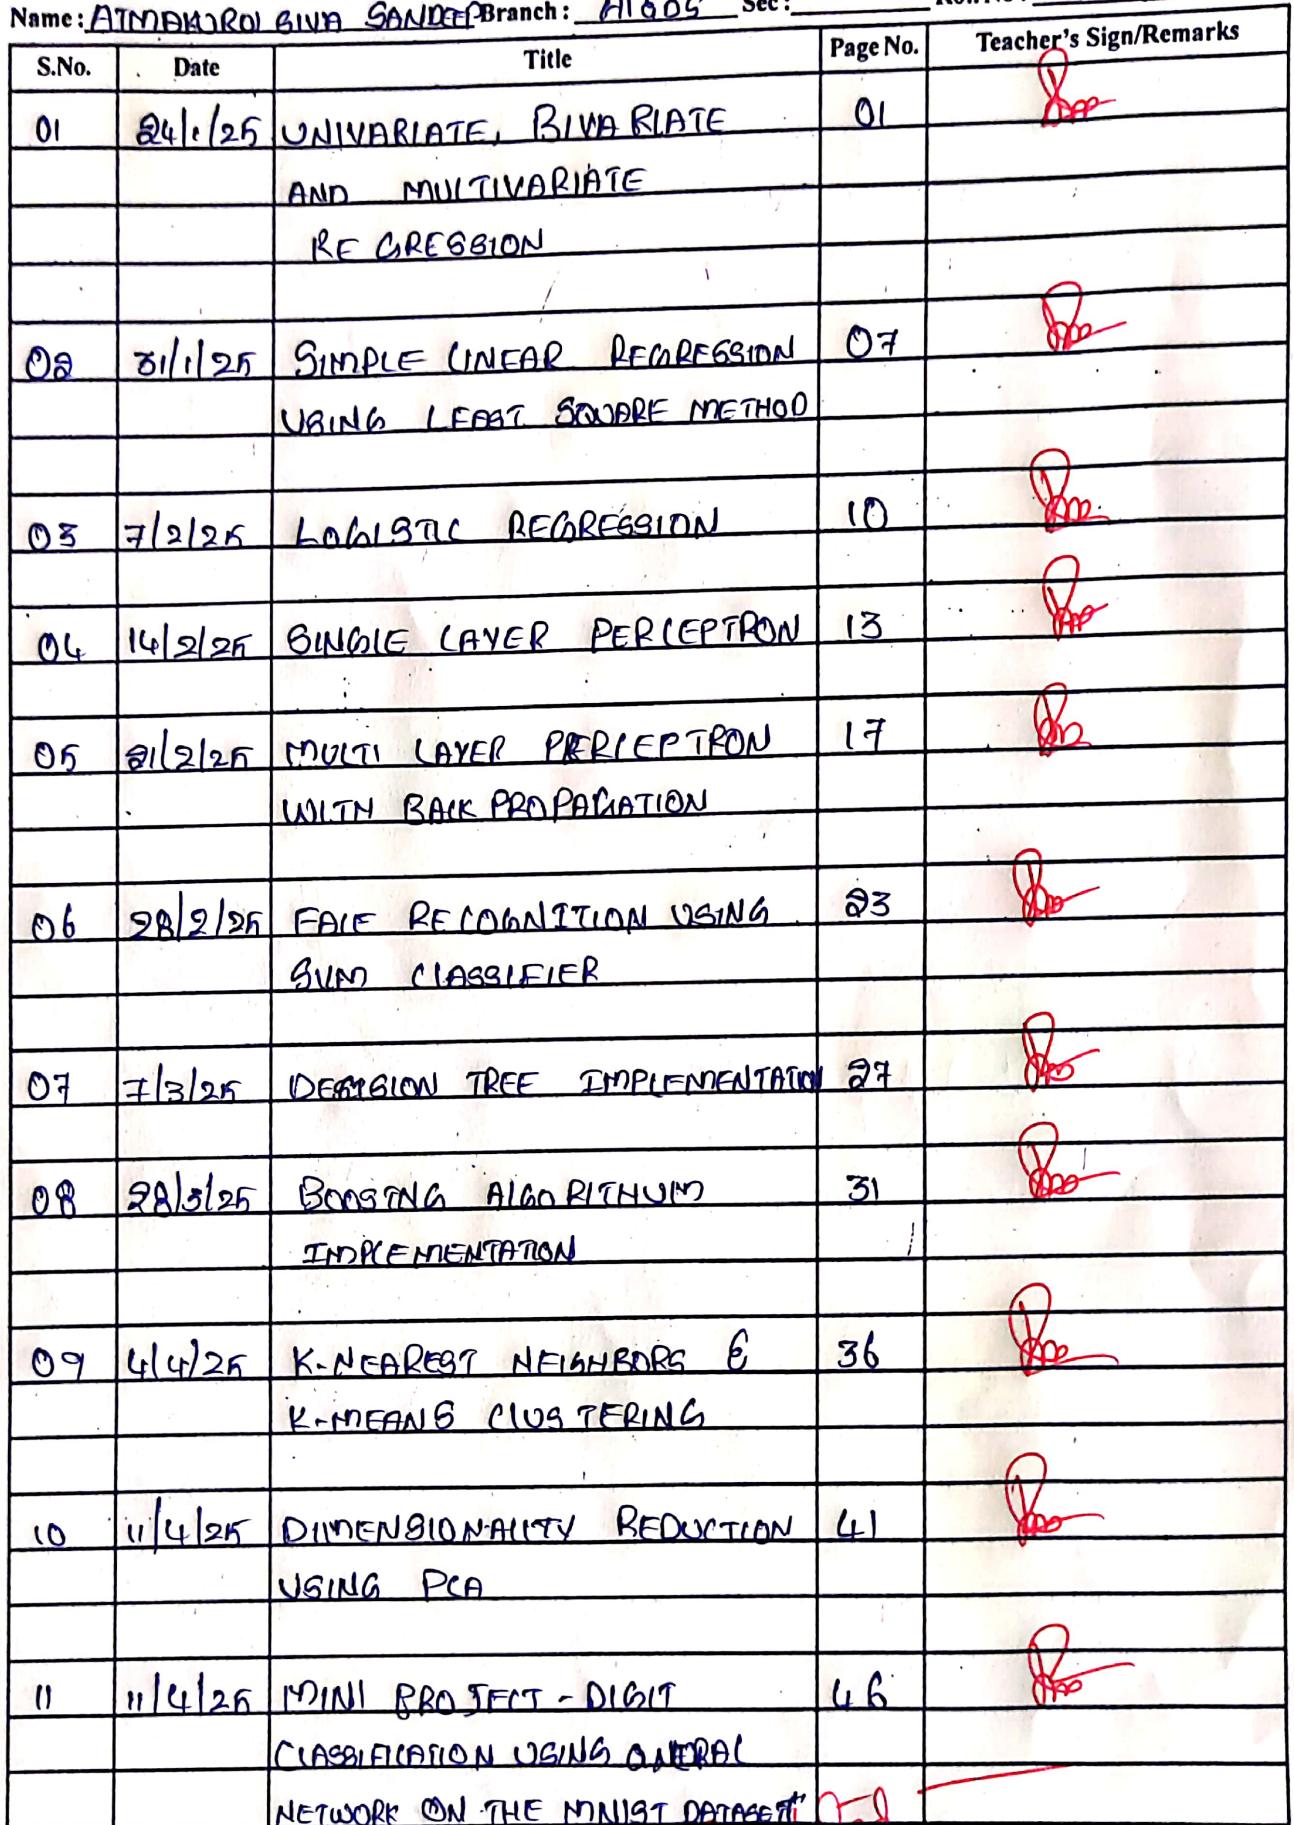 Name: ATMAKUROI SIVA SANDEEP Branch: AI&DS Sec:
S.No. Date Title Page No. Teacher's Sign/Remarks
01 24/1/25 UNIVARIATE, BIVARIATE 01
AND MULTIVARIATE
REGRESSION
02 31/1/25 SIMPLE LINEAR REGRESSION 07
USING LEAST SQUARE METHOD
03 7/2/25 LOGISTIC REGRESSION 10
04 14/2/25 SINGLE LAYER PERCEPTRON 13
05 21/2/25 MULTI LAYER PERCEPTRON 17
WITH BACK PROPAGATION
06 28/2/25 FACE RECOGNITION USING 23
SVM CLASSIFIER
07 7/3/25 DECISION TREE IMPLEMENTATION 27
08 28/3/25 BOOSTING ALGORITHUM 31
IMPLEMENTATION
09 4/4/25 K-NEAREST NEIGHBORS & 36
K-MEANS CLUSTERING
10 11/4/25 DIMENSIONALITY REDUCTION 41
USING PCA
11 11/4/25 MINI PROJECT - DIGIT 46
CLASSIFICATION USING NEURAL
NETWORK ON THE MNIST DATASET